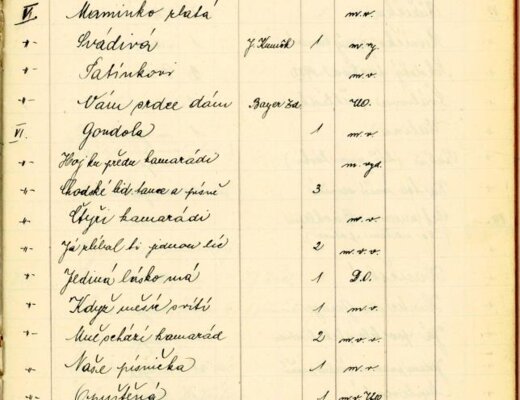 VI Maminko zlatá m.v.
-"- Svádivá J. Kumök 1 m.v.
-"- Tatínkovi m.v.
-"- Vám srdce dám Bayer Zd. U.O.
VI. Gondola 1 m.v.
-"- Hoj ku předu kamarádi m. vyd.
-"- Chodské lid. tance a písně 3
-"- Čtyři kamarádi m.v.
-"- Já slíbal bi jednou líc 2 m.v.
-"- Jediná lásko má 1 D.O.
-"- Když měsíc svítí 1 m.v.
-"- Mně schází kamarád 2 m.v.
-"- Naše písnička 1 m.v.
-"- Opuštěná 1 m.v. U.O.